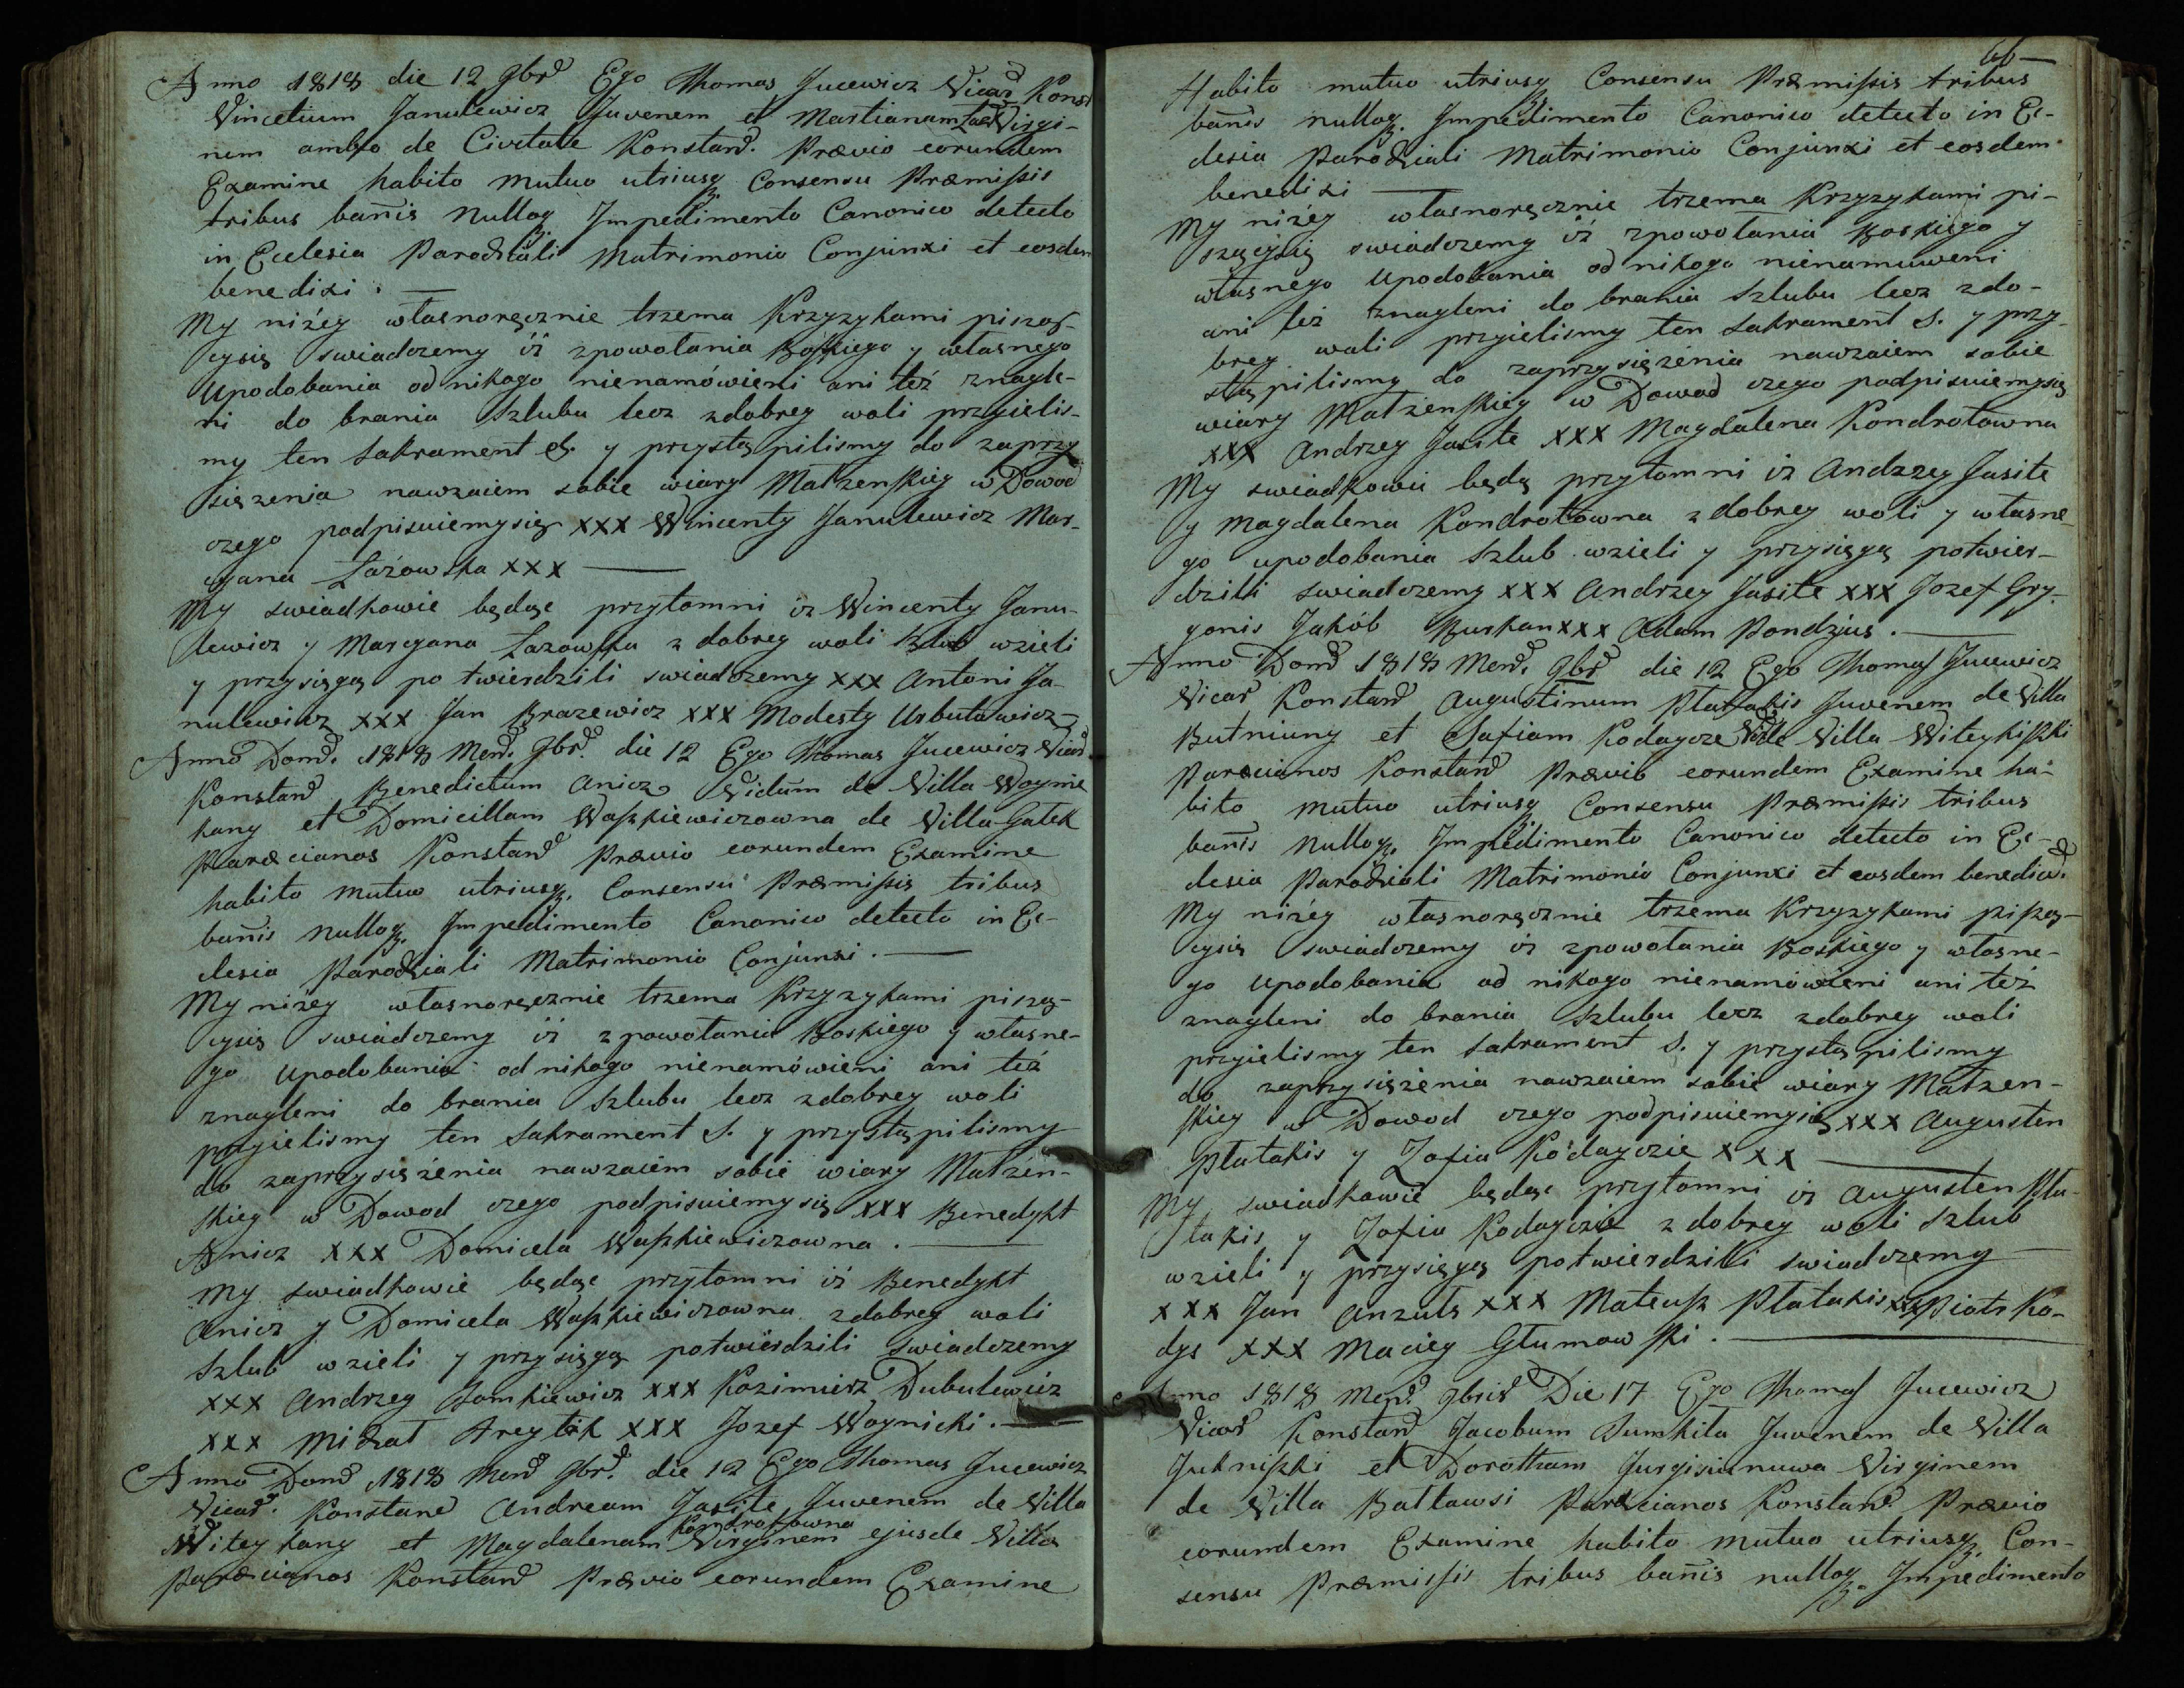 Anno 1818 die 12 9brẽ Ego Thomas Jucewicz Vicar Konst
Vincetium Janulewicz Juvenem et Martianam Virgi-
nem ambo de Civitate Konstand. Prævio eorundem
Examine habito mutuo utriusq. Consensu Præmissis
tribus banis nulloq. Impedimento Canonico detecto
in Ecclesia Parochiali Matrimonio Conjunxi et eosdem
benedixi. —
My niżey własnoręcznie trzema Krzyzykami piszą-
cysię swiadczemy iż zpowołania Boskiego y własnego
Upodobania od nikogo nienamówieni ani też znagle-
ni do brania Szlubu lecz zdobrey woli przyielis-
my ten Sakrament S. y przystąpilismy do zaprzy
siężenia nawzaiem sobie wiary Małzenskiey w Dowod
czego podpisuiemysię xxx Wincenty Janulewicz Mar-
cyana Łazowska xxx —
My swiadkowie będąc przytomni iz Wincenty Janu-
lewicz y Marcyana Łazowska z dobrey woli Szlub wzieli
y przysięgą po twierdzili swiadczemy xxx Antoni Ja-
nulewicz xxx Jan Brazewicz xxx Modesty Urbutowicz
Anno Dom. 1818 Men. 9brẽ. die 12 Ego Thomas Jucewicz Vicar
Konstand Benedictum Anicz Vidum de Villa Woynie
kany et Domicillam Waszkiewiczowna de Villa Gałek
Paræcianos Konstand Prævio eorundem Examine
habito mutuo utriusq. Consensu Præmissis tribus
banis nulloq. Impedimento Canonico detecto in Ec-
clesia Parochiali Matrimonio Conjunxi. —
My niżey własnoręcznie trzema Krzyzykami piszą-
cysię swiadczemy iż zpowołania Boskiego y własne-
go Upodobania od nikogo nienamówieni ani też
znagleni do brania Szlubu lecz zdobrey woli
przyielismy ten Sakrament S. y przystąpilismy
do zaprzysiężenia nawzaiem sobie wiary Małzen-
skiey w Dowod czego podpisuiemysię xxx Benedykt
Anicz xxx Domicela Waszkiewiczowna. —
My swiadkowie będąc przytomni iż Benedykt
Anicz y Domicela Waszkiewiczowna zdobrey woli
Szlub wzieli y przysięgą potwierdzili swiadczemy
xxx Andrzey Tomkiewicz xxx Kazimierz Dubulewicz
xxx Michał xxx Jozef Woynicki. —
Anno Dom 1818 Men 9br. die 12 Ego Thomas Jucewicz
Vicar. Konstand Andream Jasite Juvenem de Villa
Witeykany et Magdalenam Kondratowna Virginem ejusde Villa
Paræcianos Konstand Prævio eorundem Examine
66 —
Habito mutuo utriusq Consensu Præmissis tribus
banis nulloq. Impedimento Canonico detecto in Ec-
clesia Parochiali Matrimonio Conjunxi et eosdem
benedixi —
My niżey własnoręcznie trzema Krzyzykami pi-
szącysię swiadczemy iż zpowołania Boskiego y
własnego Upodobania od nikogo nienamuweni
ani też znagleni do brania Szlubu lecz zdo-
brey woli przyielismy ten Sakrament S. y przy-
stąpilismy do zaprzysiężenia nawzaiem sobie
wiary Małzenskiey w Dowod czego podpisuiemysię
xxx Andrzey Jasite xxx Magdalena Kondrotowna
My swiadkowie będą przytomni iz Andrzey Jasite
y Magdalena Kondrotowna z dobrey woli y własne
go upodobania Szlub wzieli y przysięgą potwier-
dzili swiadczemy xxx Andrzey Jasite xxx Jozef Gry-
gonis Jakób Burkan xxx Adam Pondzius. —
Anno Dom 1818 Men. 9br die 12 Ego Thomas Jucewicz
Vicar Konstand Augustinum Płatakis Juvenem de Villa
Butniuny et Safiam Kodaycze de Villa Witeykiszki
Paræcianos Konstand Prævio eorundem Examine ha-
bito mutuo utriusq Consensu Præmissis tribus
banis nulloq. Impedimento Canonico detecto in Ec-
clesia Parochiali Matrimonio Conjunxi et eosdem benedix.
My niżey własnoręcznie trzema Krzyzykami piszą-
cysię swiadczemy iz zpowołania Boskiego y własne-
go Upodobania od nikogo nienamówieni ani też
znagleni do brania Szlubu lecz zdobrey woli
przyielismy ten Sakrament S. y przystąpilismy
do zaprzysiężenia nawzaiem sobie wiary Małzen-
skiey w Dowod czego podpisuiemysię xxx Augusten
Płatakis y Zofia Kodayczie xxx —
My swiadkowie będąc przytomni iz Augusten Pła-
takis y Zofia Kodayczie z dobrey woli Szlub
wzieli y przysięgą potwierdzili swiadczemy —
xxx Jan Anzuls xxx Mateusz Płatakis xxx Piotr Ko-
dys xxx Maciey Głumowski. —
Anno 1818 Men. 9bris Die 17 Ego Thomas Jucewicz
Vicar Konstand Jacobum Dumkita Juvenem de Villa
Jukniszki et Dorotham Jurgisiunuwa Virginem
de Villa Bałtawsi Paræcianos Konstand. Prævio
eorundem Examine habito mutuo utriusq. Con-
sensu Præmissis tribus banis nulloq. Impedimento